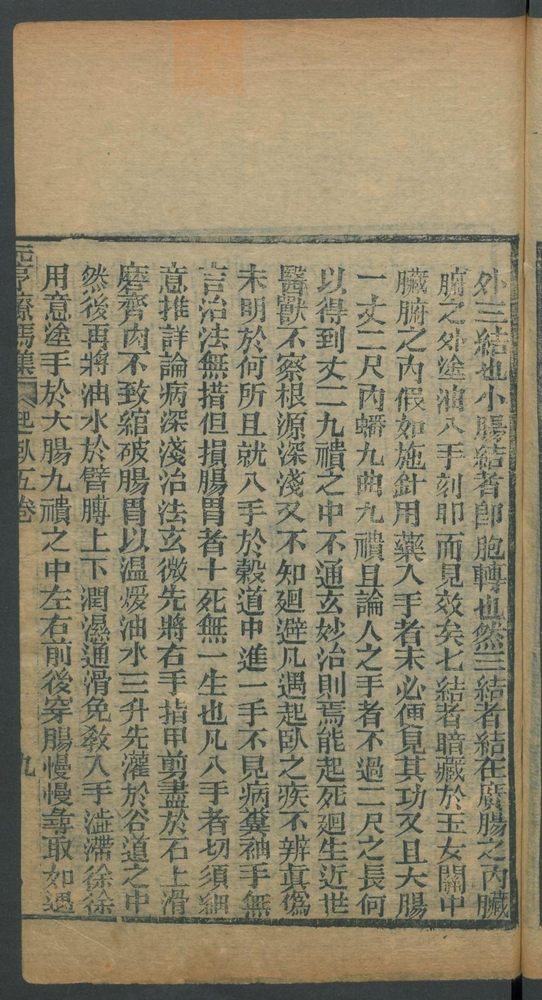 外三結也小腸結者即胞轉也然三結者結在廣腸之內臟
腑之外塗油入手刻即而見效矣七結者暗藏於玉女關中
臟腑之內假如施針用藥入手者未必便見其功又且大腸
一丈二尺內蟠九曲九䙡且論人之手者不過二尺之長何
以得到丈二九䙡之中不通玄妙治則焉能起死廻生近世
醫獸不察根源深淺又不知廻避凡遇起臥之疾不辨真偽
未明於何所且就入手於穀道中進一手不見病糞袖手無
言治法無措但損腸胃者十死無一生也凡入手者切須細
意推詳論病深淺治法玄微先將右手指甲剪盡於石上滑
磨齊肉不致綰破腸胃以温煖油水三升先灌於谷道之中
然後再將油水於臂膊上下潤濕通滑免敎入手澁滯徐徐
用意塗手於大腸九䙡之中左右前後穿腸慢慢尋取如遇
元亨療馬集 起臥五卷 九